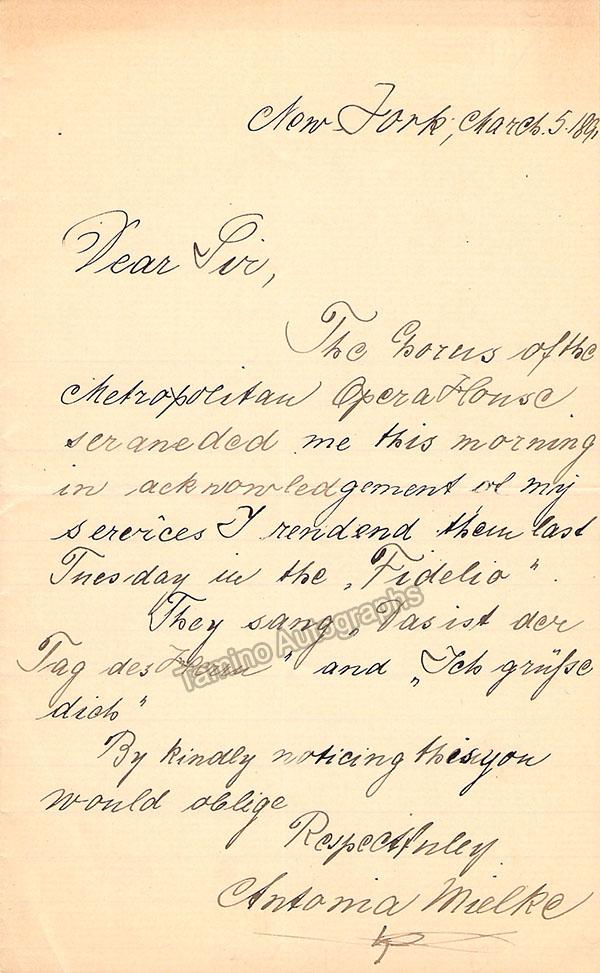 New York, March. 5. 189
Dear Sir,
The Chorus of the
Metropolitan Opera House
seraneded me this morning
in acknowledgement of my
serevices I rendend them last
Tuesday in the „Fidelio".
They sang „Das ist der
Tag des Herrn" and „Ich grüße
dich"
By kindly noticing this you
would oblige
Respectfuley
Antonia Mielke
Tamino Autographs